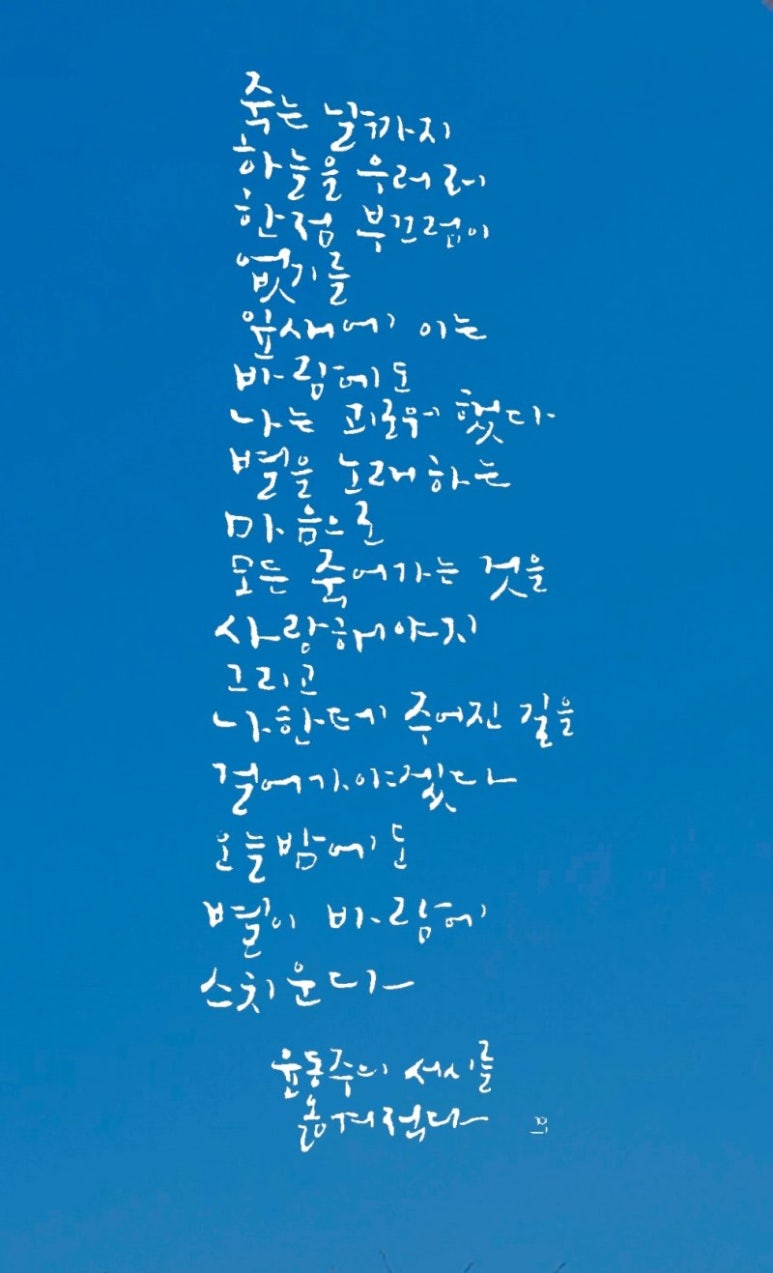 죽는 날까지
하늘을 우러러
한점 부끄럼이
없기를
잎새에 이는
바람에도
나는 괴로워 했다
별을 노래하는
마음으로
모든 죽어가는 것을
사랑해야지
그리고
나한테 주어진 길을
걸어가야겠다
오늘밤에도
별이 바람에
스치운다
윤동주의 서시를
옮겨적다